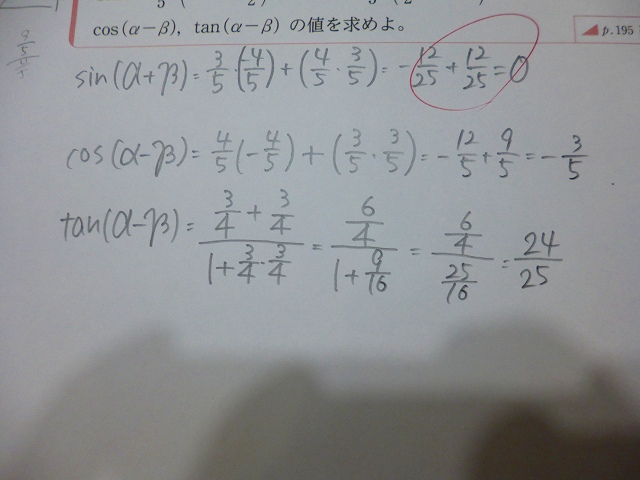 5 2) 5 (2
cos(α-β), tan(α-β) の値を求めよ。
p.195
sin(α+β)= 3/5·(-4/5)+(4/5·3/5)=-12/25+12/25=0
cos(α-β)= 4/5(-4/5)+(3/5·3/5)=-12/5+9/5=-3/5
tan(α-β)= (3/4+3/4)/(1+3/4·3/4) = (6/4)/(1+9/16) = (6/4)/(25/16) = 24/25